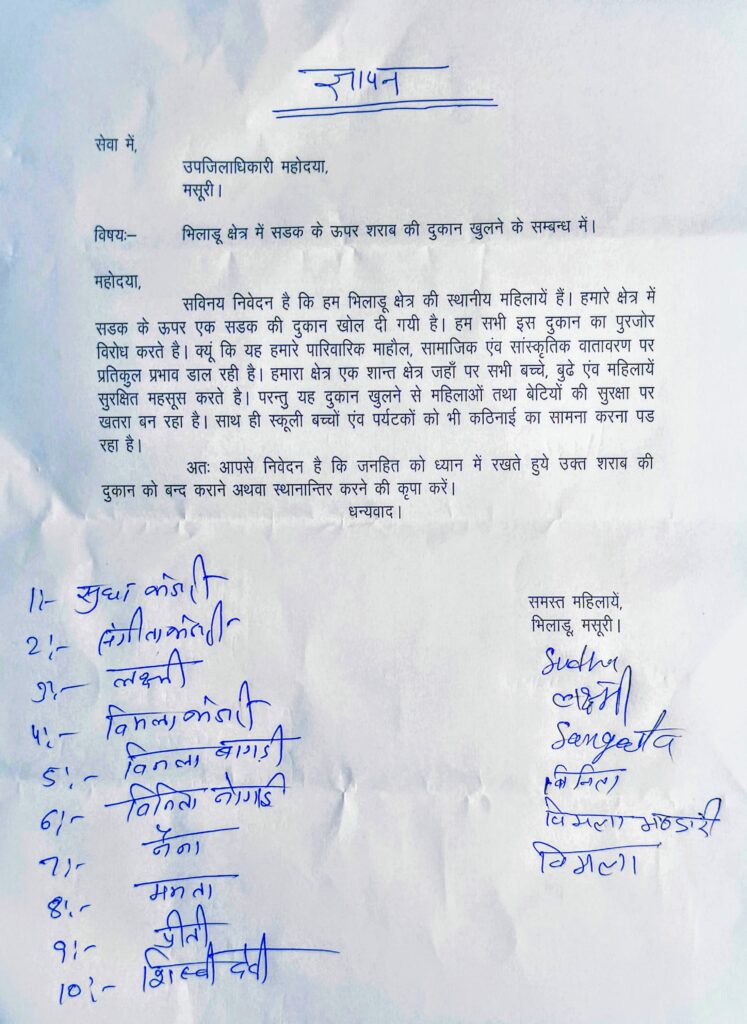 ज्ञापन
सेवा में,
उपजिलाधिकारी महोदया,
मसूरी।
विषयः– भिलाडू क्षेत्र में सडक के ऊपर शराब की दुकान खुलने के सम्बन्ध में।
महोदया,
सविनय निवेदन है कि हम भिलाडू क्षेत्र की स्थानीय महिलायें हैं। हमारे क्षेत्र में
सडक के ऊपर एक सडक की दुकान खोल दी गयी है। हम सभी इस दुकान का पुरजोर
विरोध करते है। क्यूं कि यह हमारे पारिवारिक माहौल, सामाजिक एंव सांस्कृतिक वातावरण पर
प्रतिकुल प्रभाव डाल रही है। हमारा क्षेत्र एक शान्त क्षेत्र जहाँ पर सभी बच्चे, बुढे एंव महिलायें
सुरक्षित महसूस करते है। परन्तु यह दुकान खुलने से महिलाओं तथा बेटियों की सुरक्षा पर
खतरा बन रहा है। साथ ही स्कूली बच्चों एंव पर्यटकों को भी कठिनाई का सामना करना पड
रहा है।
अतः आपसे निवेदन है कि जनहित को ध्यान में रखते हुये उक्त शराब की
दुकान को बन्द कराने अथवा स्थानान्तिर करने की कृपा करें।
धन्यवाद।
समस्त महिलायें,
भिलाडू, मसूरी।
1:- सुधा
2:- संगीता
3:- लक्ष्मी
4:- विमला
5:- विमला बागड़ी
6:- विनिता
7:- नैना
8:- ममता
9:- प्रीती
10:- देवी
Sudha
लक्ष्मी
Sangeeta
विनिता
विमला भण्डारी
विमला